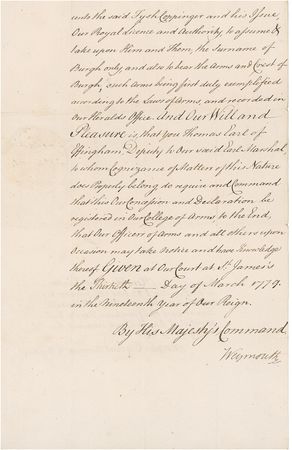 unto the said Fysh Coppinger and his Issue
Our Royal Licence and Authority to assume &
take upon Him and Them, the Surname of
Burgh only and also to bear the Arms and Crest of
Burgh; such Arms being first duly exemplified
according to the Laws of Arms, and recorded in
our Heralds Office. And Our Will and
Pleasure is, that you Thomas Earl of
Effingham, Deputy to Our said Earl Marshal,
to whom Cognizance of Matters of this Nature
does Properly belong do require and Command
that this Our Concession and Declaration be
registered in Our College of Arms, to the End,
that Our Officers of Arms and all others upon
Occasion may take Notice and have Knowledge
thereof Given at Our Court at St. James's
the Thirtieth Day of March 1779.
in the Nineteenth Year of Our Reign.
By His Majesty's Command.
Weymouth